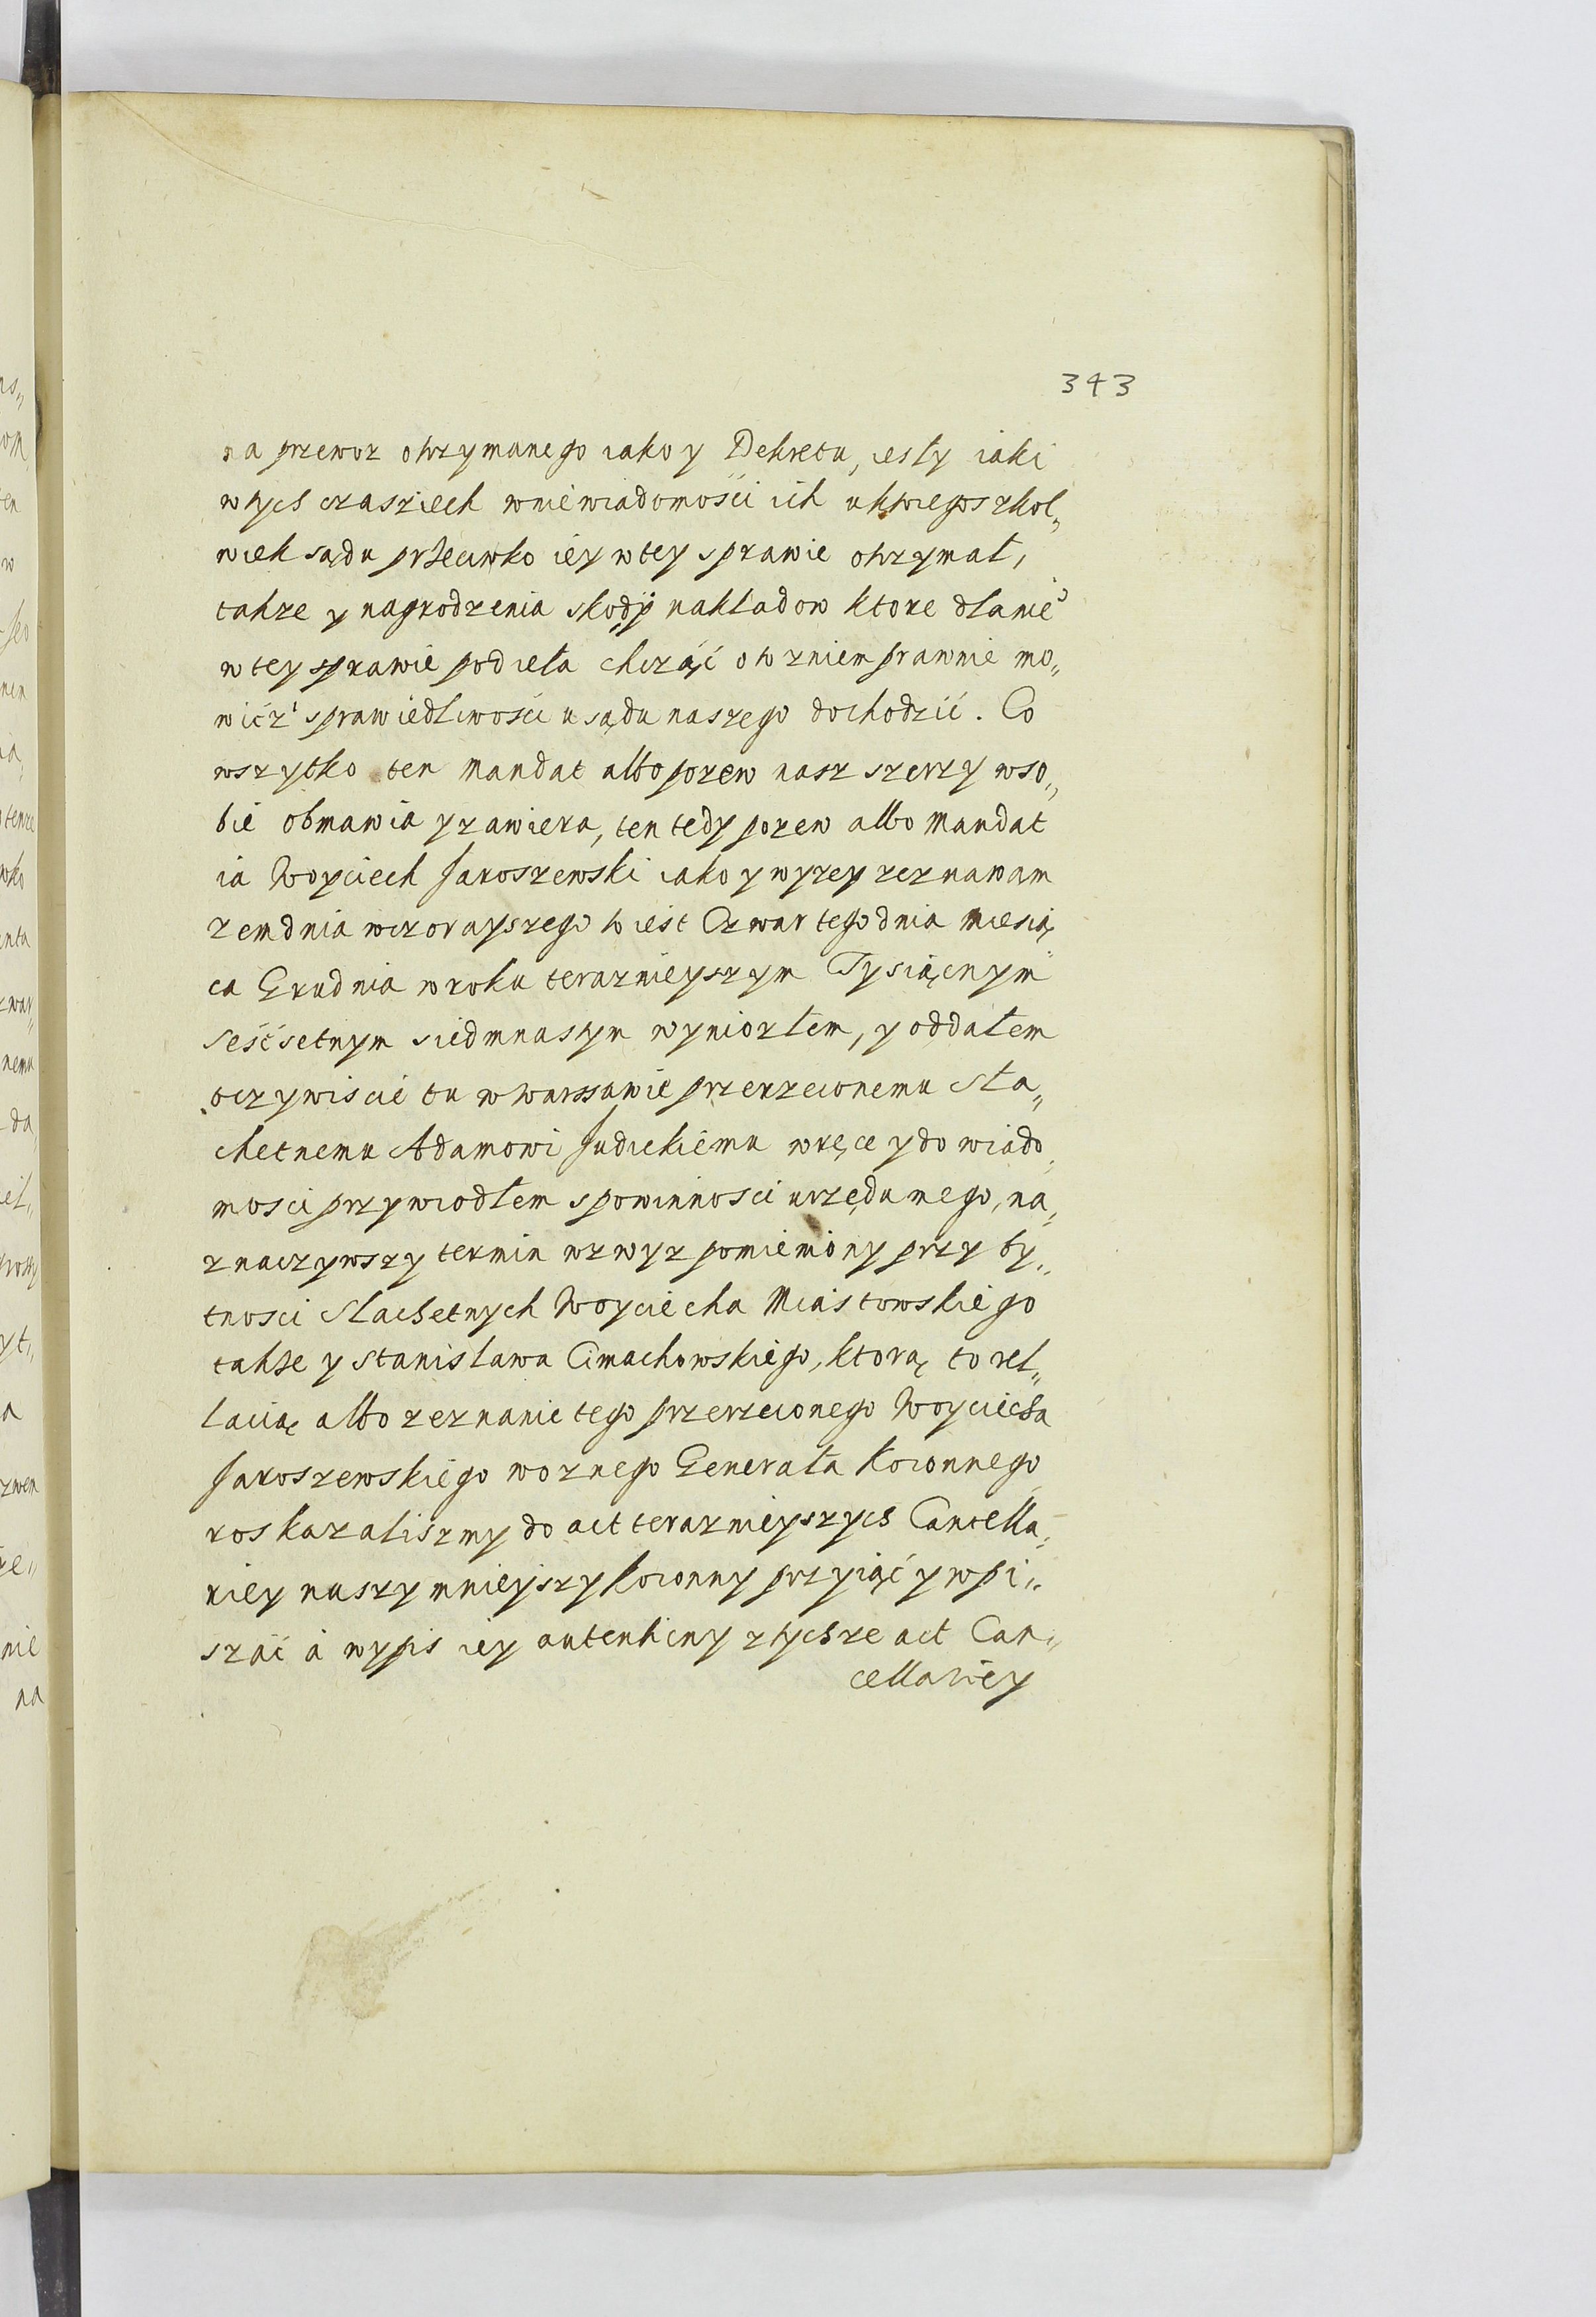 343
na przewoz otrzymanego iako y Dekretu, iesly iaki
w tych czasziech w niewiadomości ich u ktoregoszkol„
wiek sądu przeciwko iey w tey sprawie otrzymał,
takze y nagrodzenia skody y nakladow ktore dla nie°
w tey sprawie podieła chcząć o to z niem prawnie mo„
wićz sprawiedliwości u sądu naszego dochodzić. Co
wszytko ten Mandat albo pozew nasz szerzy w so„
bie obmawia y zawiera, ten tedy pozew albo Mandat
ia Woyciech Jaroszewski iako y wyzey zeznawam
zem dnia wczorayszego to iest Czwartego dnia Miesią
ca Grudnia w roku teraznieyszym Tysiącnym
seśćsetnym siedmnastym wyniozłem, y oddałem
oczywiscie tu w Warssawie przerzeconemu Sla„
chetnemu Adamowi Judickiemu w ręce y do wiado„
mosci przywiodłem s powinnosci urzędu mego, na„
znaczywszy termin wzwyz pomieniony przy by„
tnosci Slachetnych Woyciecha Miastowskiego
takze y Stanislawa Cimachowskiego, ktorą to rel„
lacią albo zeznanie tego przerzeconego Woyciecha
Jaroszewskiego woznego Generała Koronnego
roskazaliszmy do act teraznieyszych Cancella„
riey naszy mnieyszy Koronny przyiąć y wpi„
szać à wypis iey autenticny z tychze act Can„
cellariey